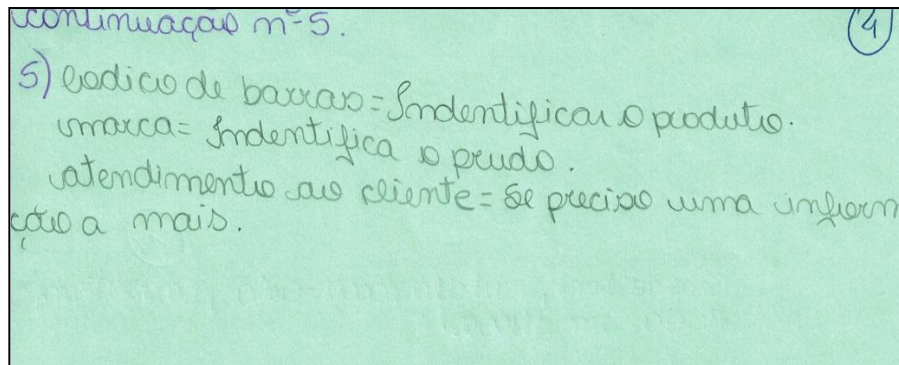 continuação nº 5.
4
5) Codico de barras = Indentificar o produto.
marca = Indentifica o prudo.
atendimento ao cliente = Se preciso uma inform
ção a mais.